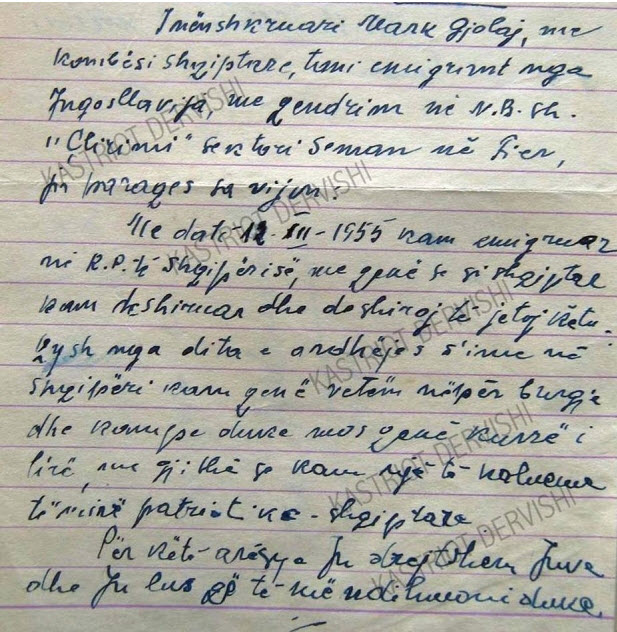 I nënshkruari Mark Gjolaj, me
kombësi shqiptare, tani emigrant nga
Jugosllavija, me qendrim në N.B.sh.
"Çlirimi" sektori Seman në Fier,
Ju parages sa vijon:
Me datë 12-XII-1955 kam emigruar
në R.P. të Shqipërisë, me qenë se si shqiptar
kam dëshiruar dhe deshiroj të jetoj këtu.
Qysh nga dita e ardhëjes s'ime në
Shqipëri kam qenë vetëm nëpër burgje
dhe kampe duke mos qenë kurrë i
lirë, me gjithë se kam një të kalueme
të mirë patriotike-shqiptare
Për këtë arësye Ju drejtohem Juve
dhe Ju lus që të më ndihmoni duke
KASTRIOT DERVISHI
KASTRIOT DERVISHI
KASTRIOT DERVISHI
KASTRIOT DERVISHI
KASTRIOT DERVISHI